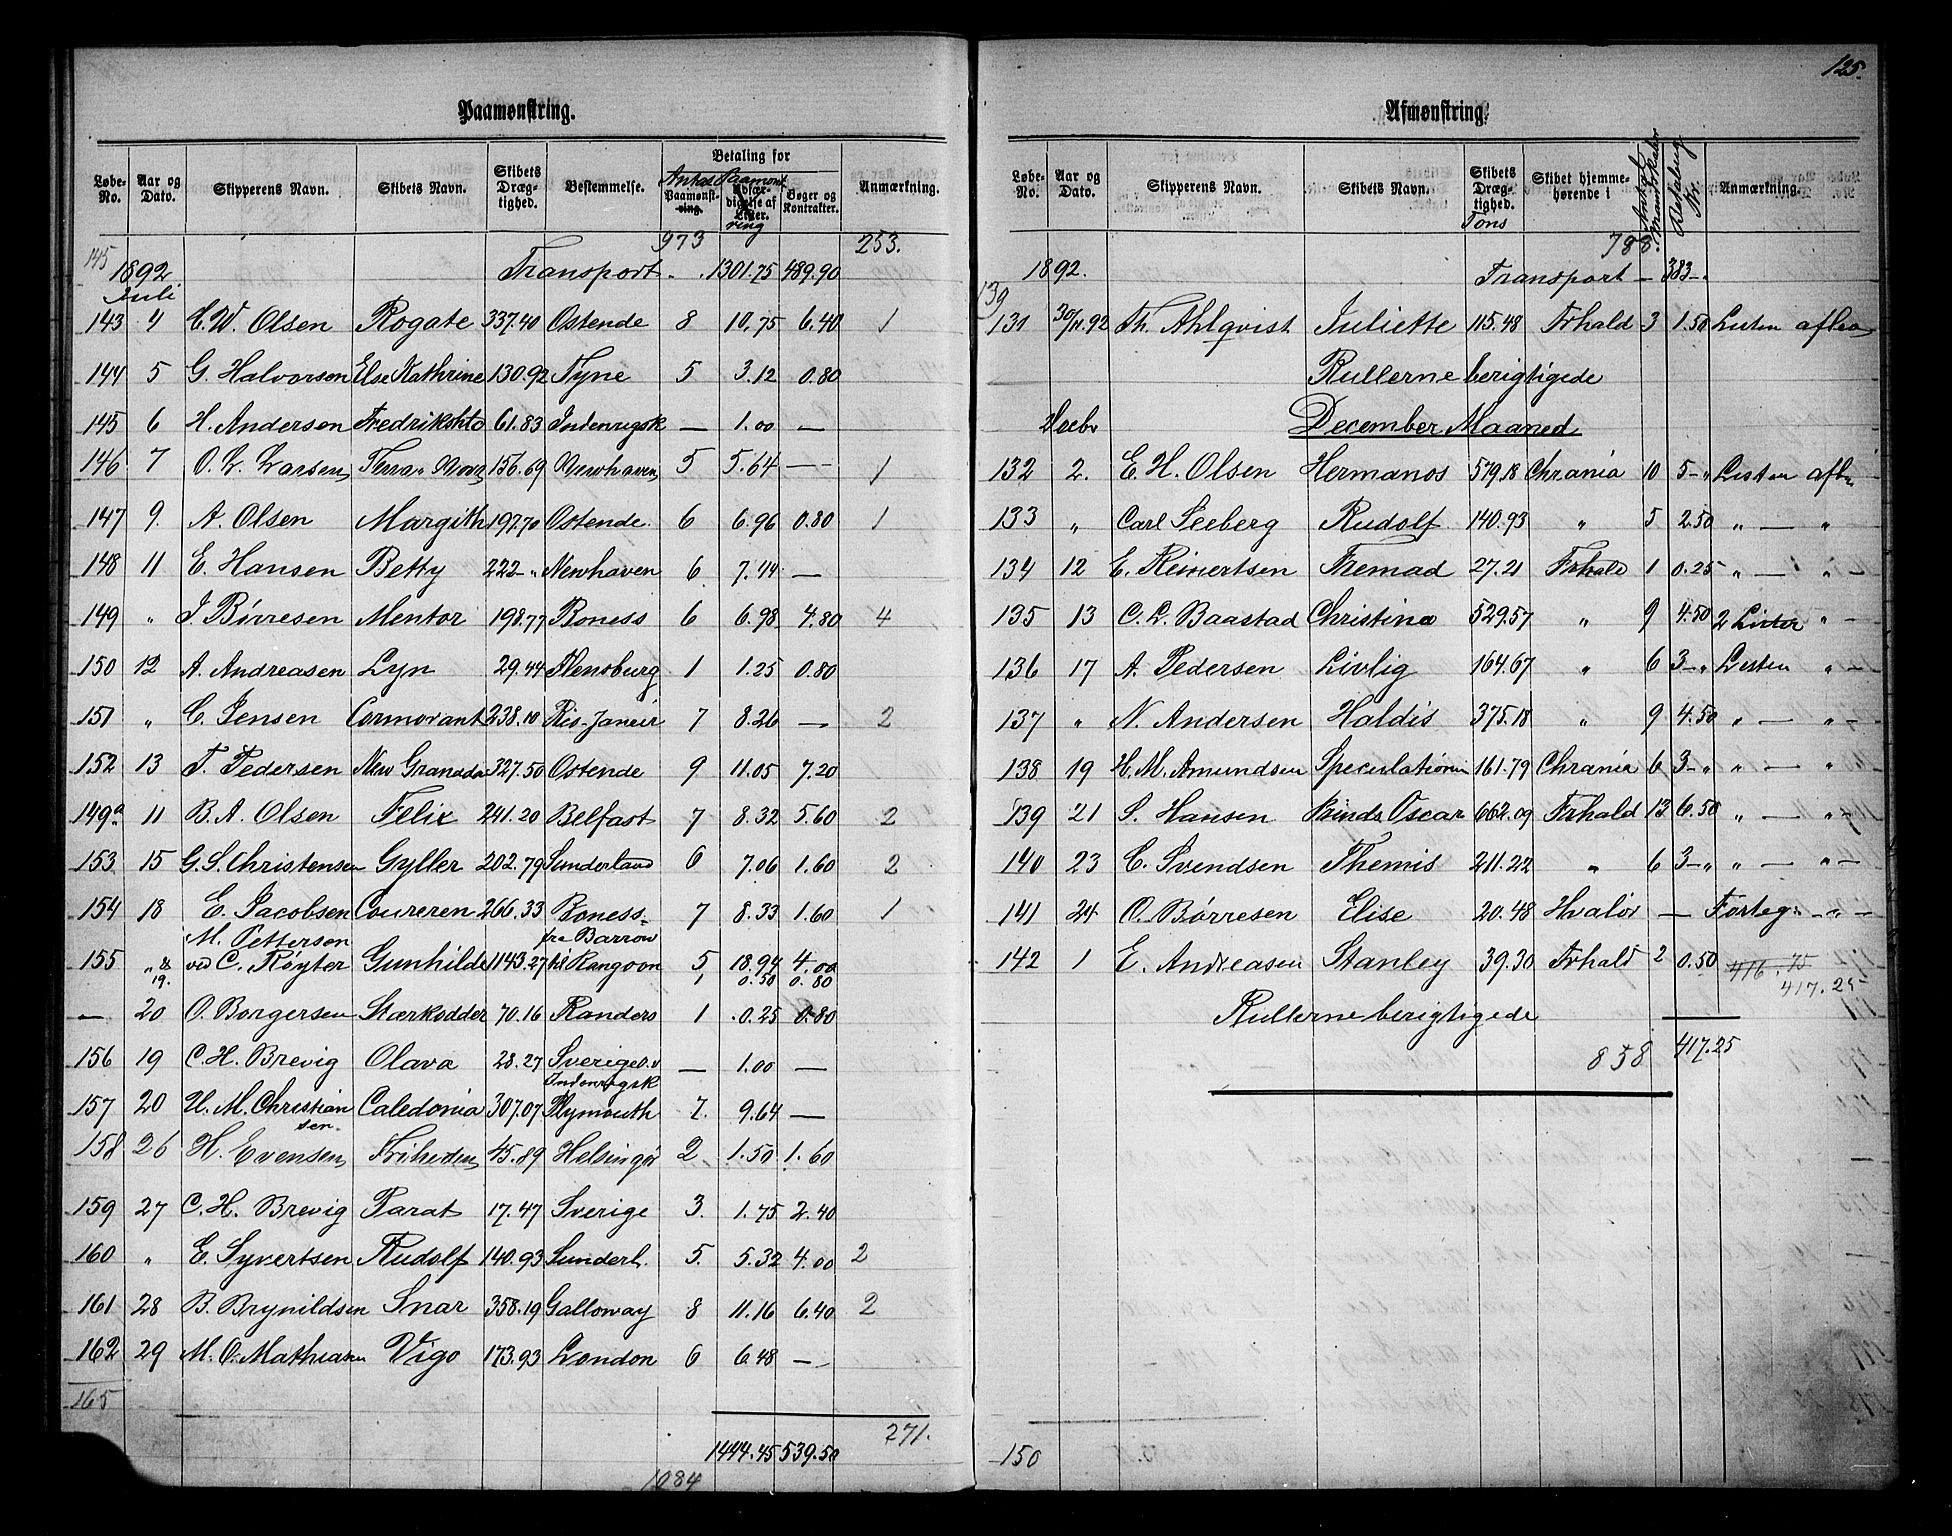 125.
Paamønstring.
Løbe-No. Aar og Dato. Skipperens Navn. Skibets Navn. Skibets Dræg-tighed. Bestemmelse. Betaling for Anmærkning.
Antal Paamønst-ring. Paamønst Udfær-digelse af Lister. ring Bøger og Kontrakter.
973 253.
145 1892 Transport - 1301.75 489.90
Juli
143 4 C. W. Olsen Rogate 337.40 Ostende 8 10.75 6.40 1
144 5 G. Halvorsen Else Kathrine 130.92 Tyne 5 3.12 0.80
145 6 H. Andersen 61.83 Indenrigsk — 1.00 —
146 7 O. L. Larsen 156.69 Newhaven 5 5.64 — 1
147 9. A. Olsen Margith 197.70 Ostende. 6 6.96 0.80 1
148 11 E. Hansen Betty 222 - " Newhaven 6 7.44 —
149 " J Børresen Mentor 198.77 Boness 6 6.98 4.80 4
150 12 A. Andreasen Lyn 29.44 Flensburg 1 1.25 0.80
151 " C. Jensen Cormorant 238.10 Rio-Janeir 7 8.26 — 2
152 13 T. Pedersen New Granada 327.50 Ostende 9 11.05 7.20
149a 11 B. A. Olsen Felix 241.20 Belfast 7 8.32 5.60 2
153 15 G. S. Christensen Gyller 202.79 Sunderland 6 7.06 1.60 2
154 18 E. Jacobsen Coureren 266.33 Boness 7 8.33 1.60 1
M. Pettersen fra Barrow
155 " & 19. ved C. Røyter Gunhilde 1143.27 til Rangoon 5 18.94 4.00
1 0.50 0.80
— 20 O. Borgersen Stærkodder 70.16 Randers 1 0.25 0.80
156 19 C. H. Brevig Olava 28.27 Sverige o. v — 1.00 —
Indenrigsk
157 20 H. M. Christian Caledonia 307.07 Plymouth 7. 9.64 —
sen.
158 26 H. Evensen Friheden 45.89 Helsingør 2 1.50 1.60
159 27 C. H. Brevig Parat 17.47 Sverige 3. 1.75 2.40
160 " E. Syvertsen Rudolf 140.93 Sunderl. 5. 5.32 4.00 2
161 28 B. Brynildsen Snar 358.19 Galloway 8 11.16 6.40 2
162 29 M. O. Mathiasen Vigo 173.93 London 6 6.48 —
165
271.
1444.45 539.50
1084
Afmønstring.
Løbe-No. Aar og Dato. Skipperens Navn. Skibets Navn. Skibets Dræg-tighed. Tons Skibet hjemme-hørende i Antal Mandskaber Betaling Kr. Anmærkning.
788
1892. Transport — 383 -
139
131 30/11.92 Th. Ahlqvist Juliette 115.48 Frhald 3 1.50 Listen
Rullerne berigtigede
Decbr December Maaned
132 2. E. H. Olsen Hermanos 579.18 Chrania 10 5 - " Listen
133 " Carl Seeberg Rudolf 140.93 " 5 2.50 " — "
134 12 E. Reinertsen Fremad 27.21 Frhald 1 0.25 " — "
135 13 C. L. Baastad Christina 529.57 " 9 4.50 2 Lister " -
136 17 A. Pedersen Livlig 164.67 " 6 3 - " Listen " -
137 " N. Andersen Haldis 375.18 " 9 4.50 " — " -
138 19 H. M. Amundsen Speculationen 161.79 Chrania 6 3 - " " — "
139 21 S. Hansen Prinds Oscar 662.09 Frhald 13 6.50 " — " -
140 23 C. Svendsen Themis 211.22 " 6 3 - " " — " -
141 24 O. Børresen Elise 20.48 Hvaler — Forteg. - " -
142 1 E. Andreasen Stanley 39.30 Frhald 2 0.50 416.75
417.25
Rullerne berigtigede
858 417.25
150